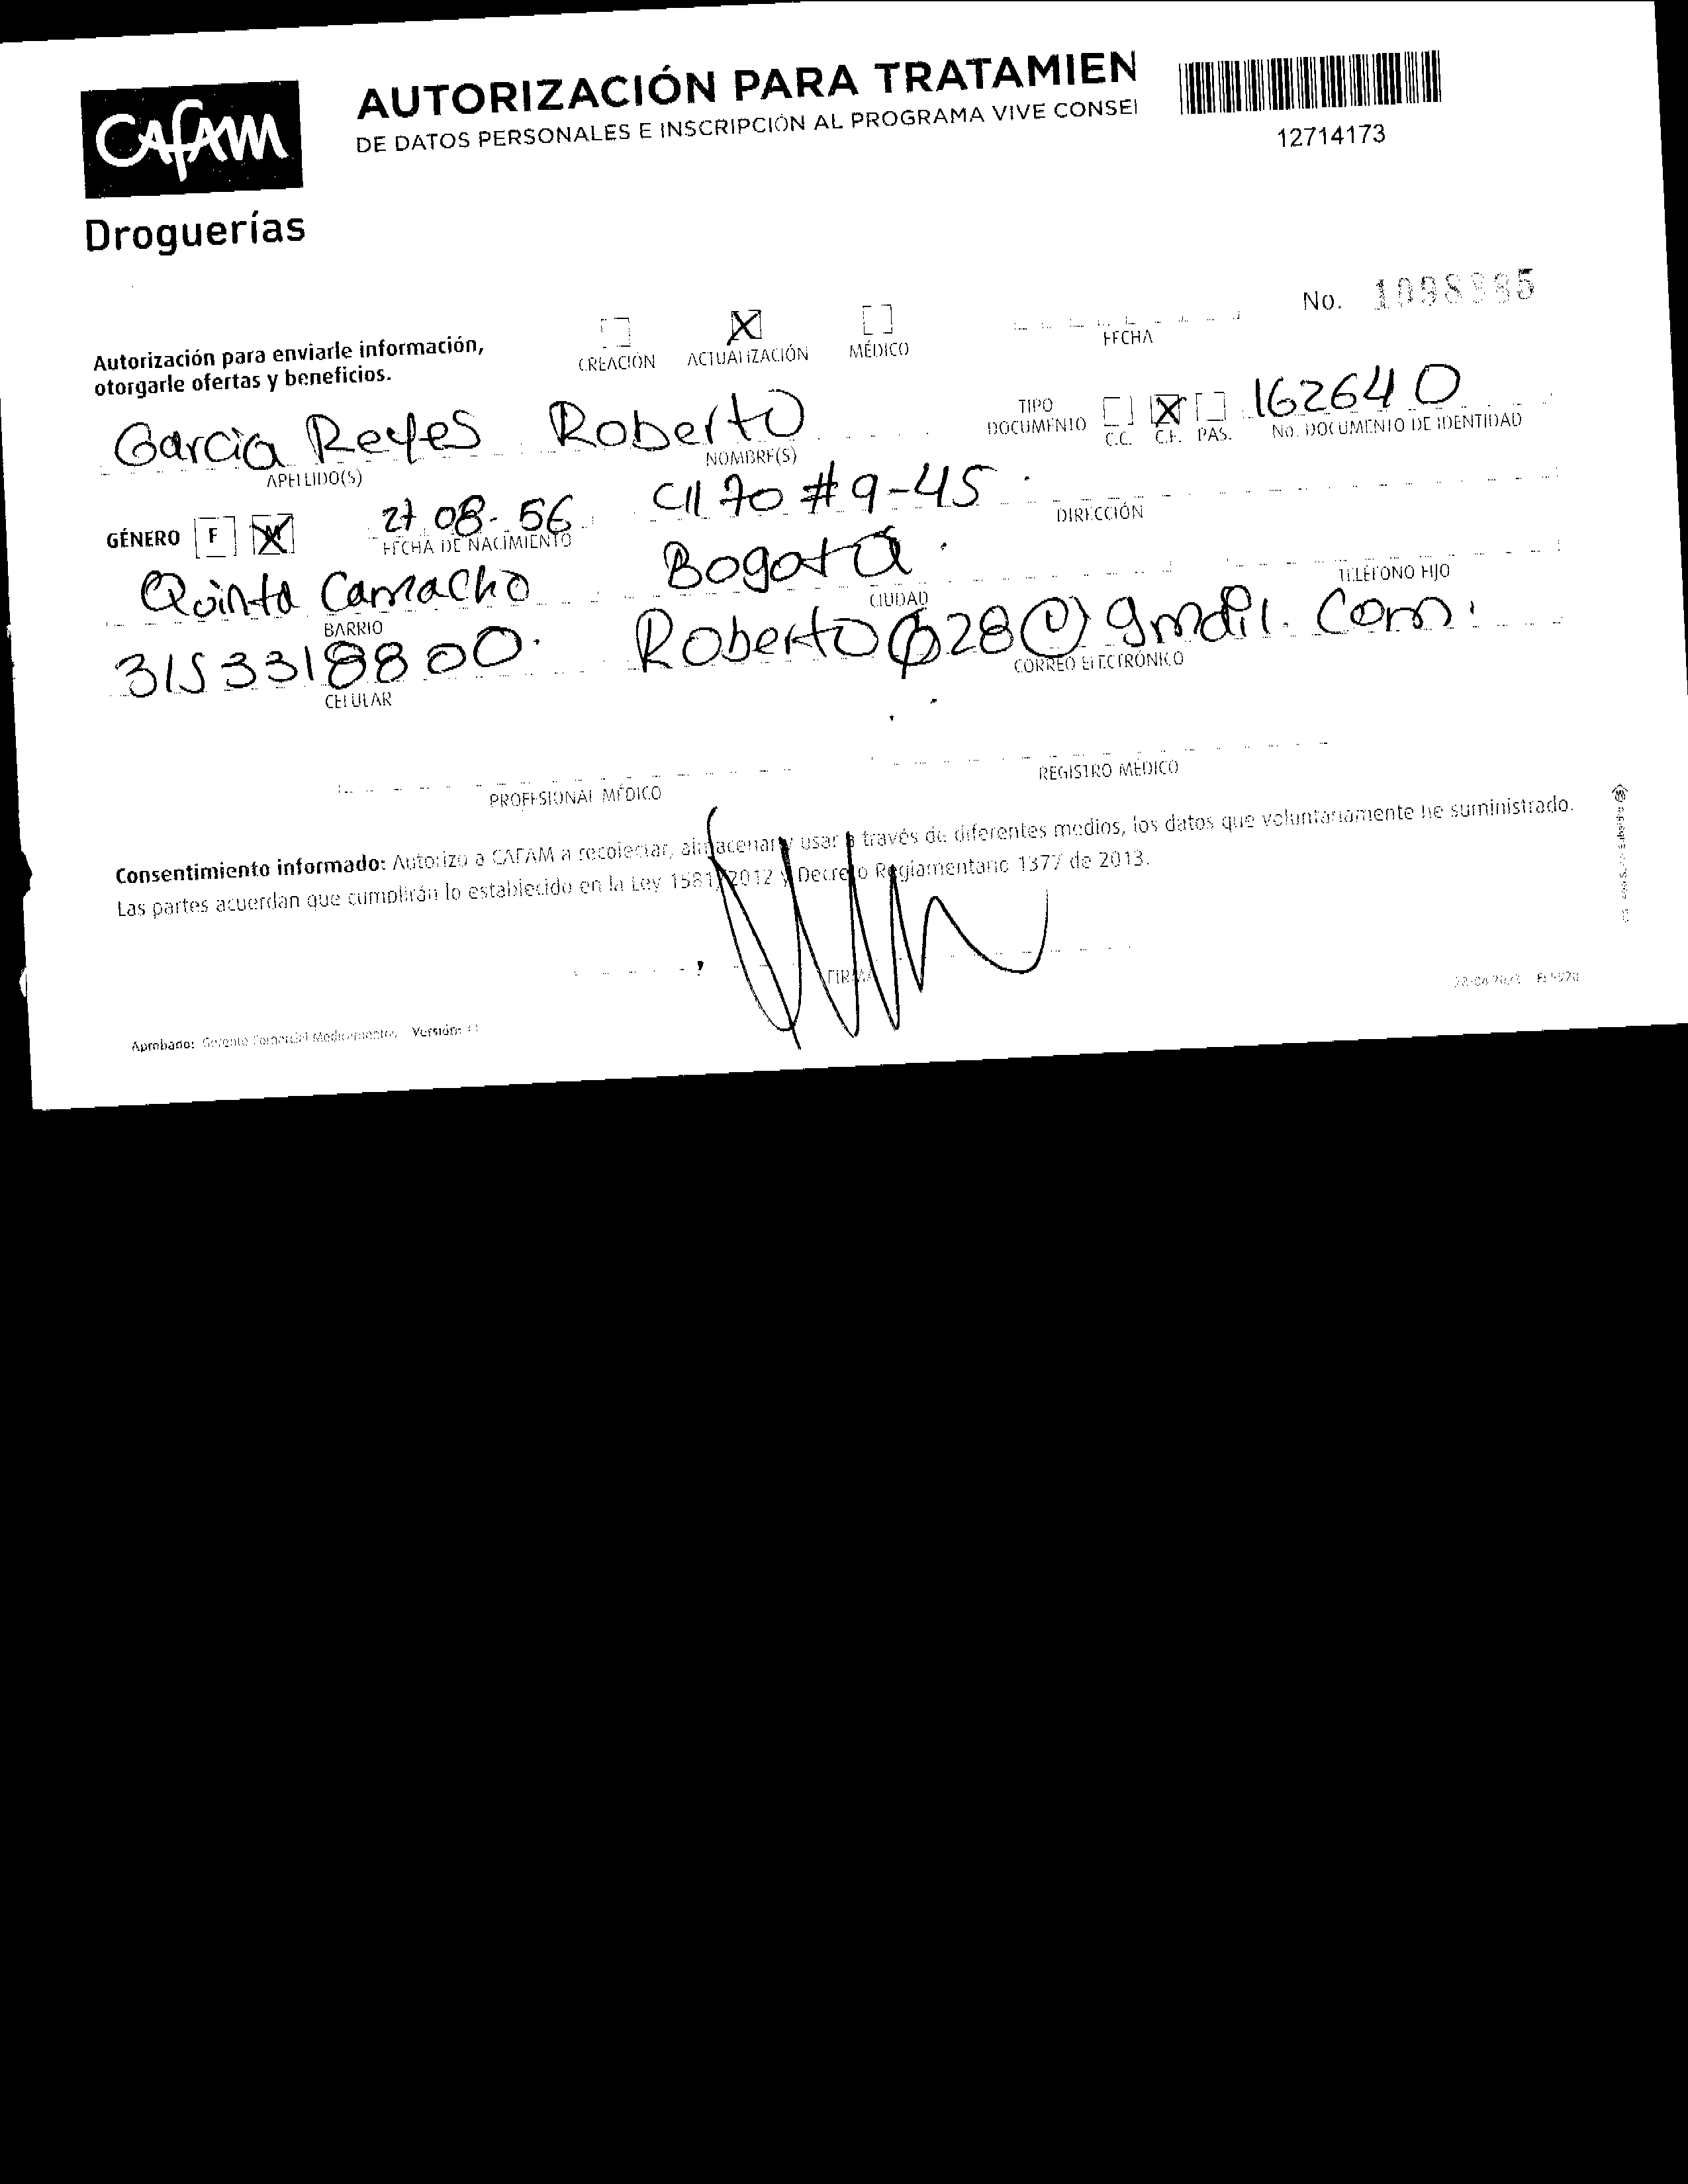 CAFAM
Droguerías
AUTORIZACIÓN PARA TRATAMIEN
DE DATOS PERSONALES E INSCRIPCIÓN AL PROGRAMA VIVE CONSEI
12714173
No.
Autorización para enviarle información,
otorgarle ofertas y beneficios.
CREACIÓN ACTUALIZACIÓN MÉDICO
FECHA
Garcia Reyes Roberto
APELLIDO(S) NOMBRE(S)
TIPO
DOCUMENTO C.C. C.E. PAS.
162640
No. DOCUMENTO DE IDENTIDAD
GÉNERO F M
27 08-56
FECHA DE NACIMIENTO
Cll 70 #9-45
DIRECCIÓN
Quinta Camacho Bogotá
BARRIO CIUDAD TELÉFONO FIJO
3153318800. Roberto028@gmail.com
CELULAR CORREO ELECTRÓNICO
PROFESIONAL MÉDICO REGISTRO MÉDICO
Consentimiento informado: Autorizo a CAFAM a recolectar, almacenar y usar a través de diferentes medios, los datos que voluntariamente he suministrado.
Las partes acuerdan que cumplirán lo establecido en la Ley 1581/2012 y Decreto Reglamentario 1377 de 2013.
FIRMA
Aprobado: Gerente Comercial Medicamentos Versión: